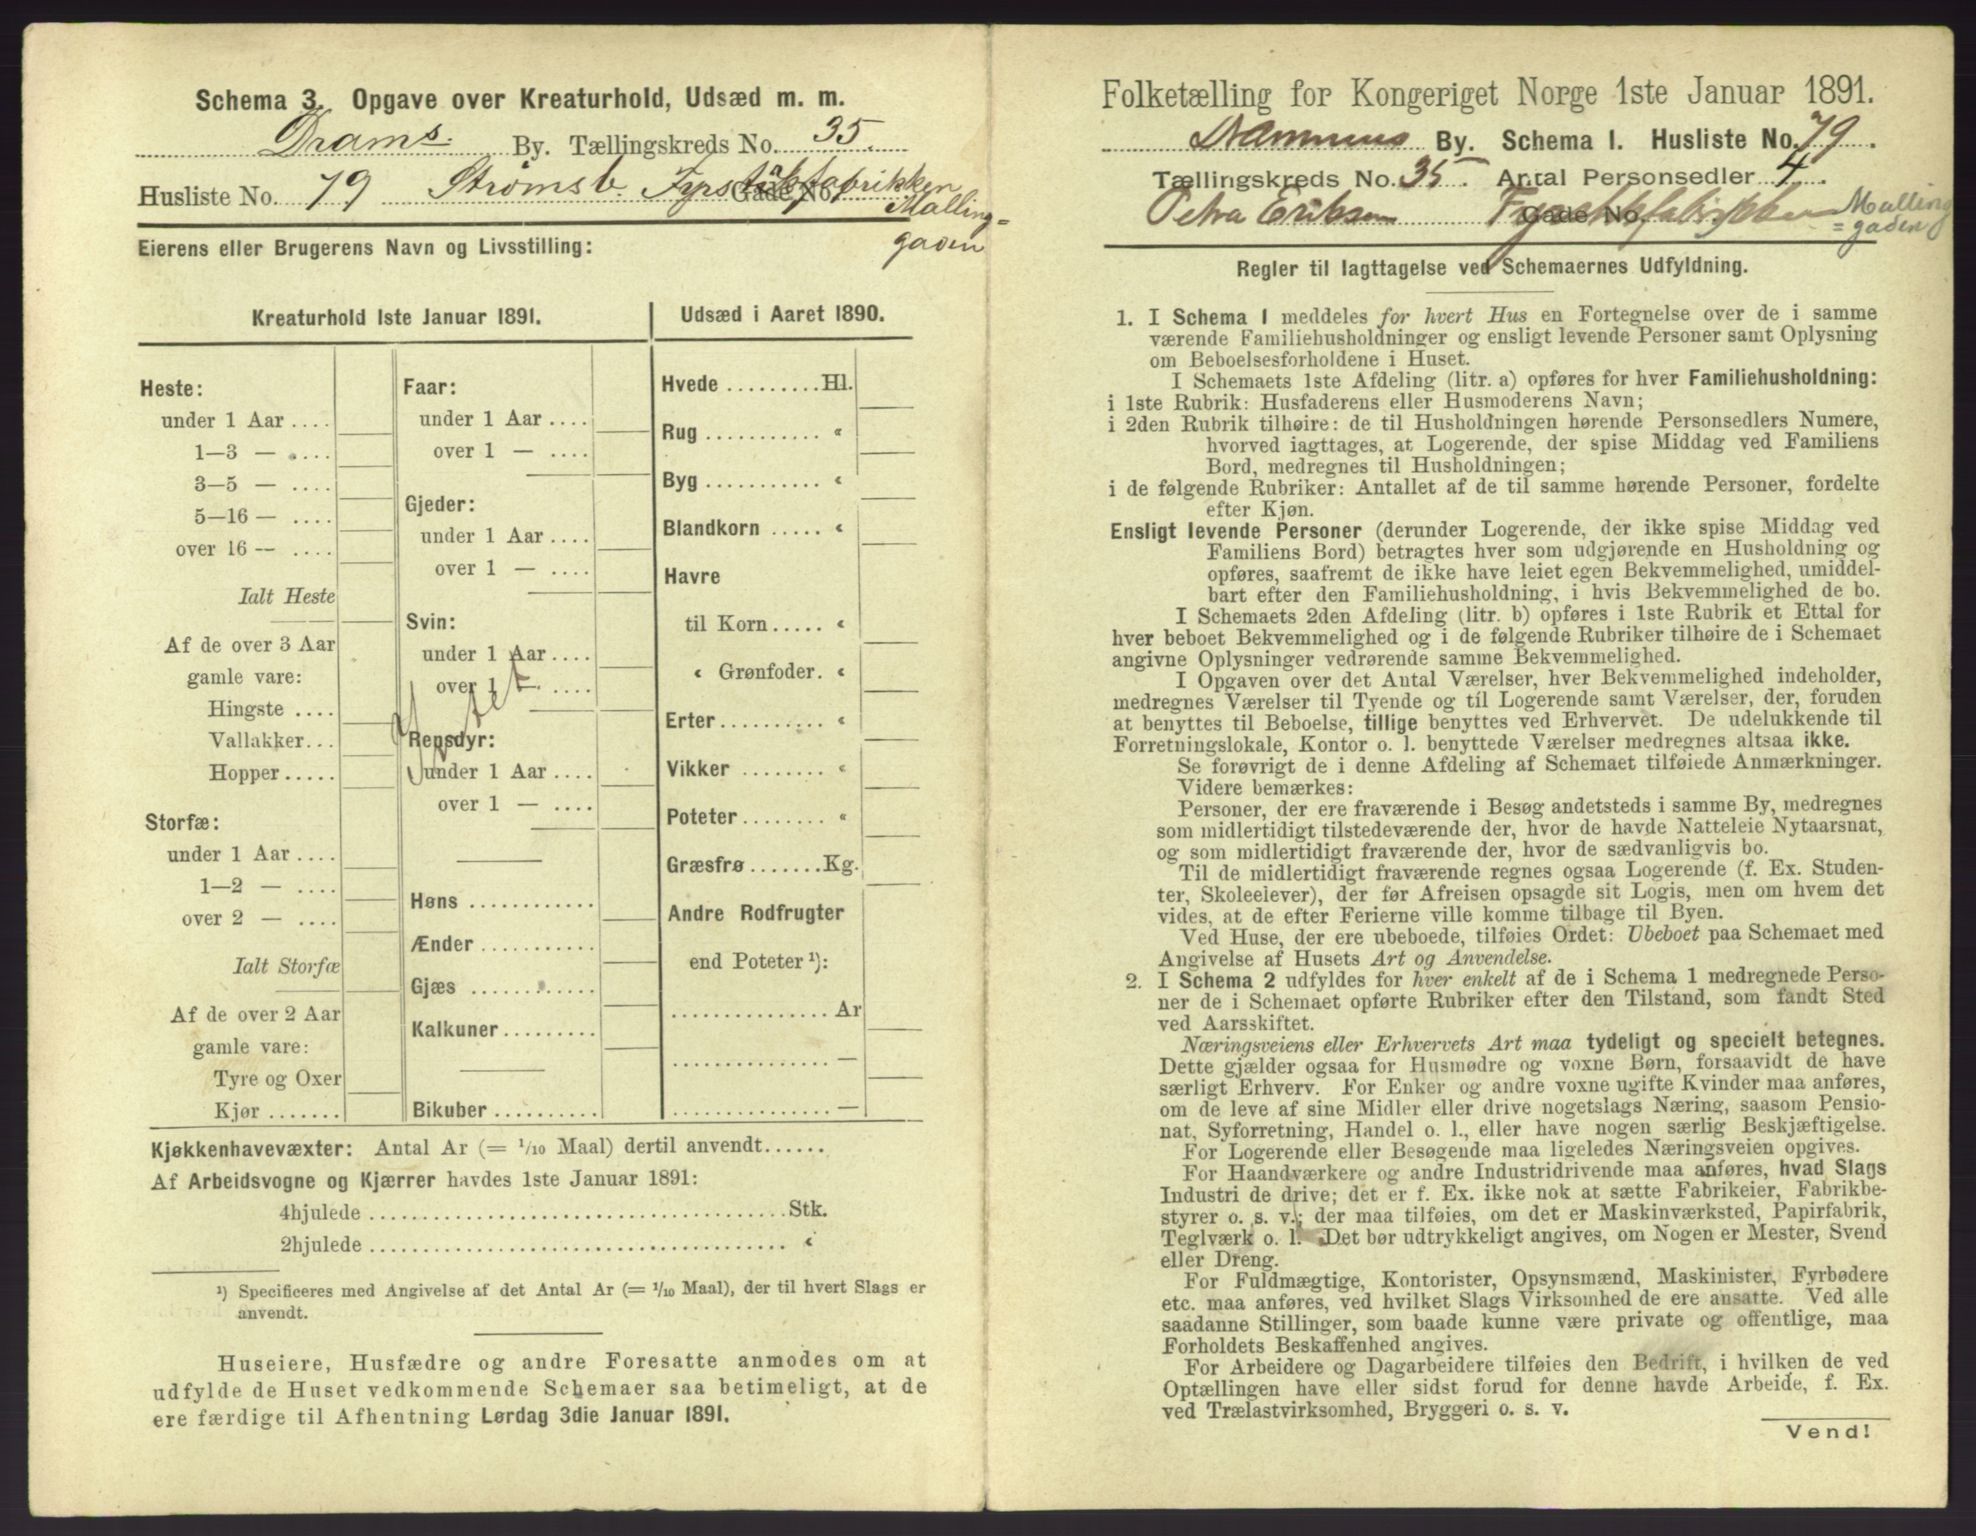 Schema 3. Opgave over Kreaturhold, Udsæd m. m.
Drams. By. Tællingskreds No. 35.
Husliste No. 79 Strømsb. Fyrstikfabrikken Gade No.
Malling=
gaden
Eierens eller Brugerens Navn og Livsstilling:
Kreaturhold 1ste Januar 1891.
Heste:
under 1 Aar ....
1—3 — ....
3—5 — ....
5—16 — ....
over 16 — ....
Ialt Heste
Af de over 3 Aar
gamle vare:
Hingste ....
Vallakker...
Hopper.....
Storfæ:
under 1 Aar ....
1—2 — ....
over 2 — ....
Ialt Storfæ
Af de over 2 Aar
gamle vare:
Tyre og Oxer
Kjør .......
Faar:
under 1 Aar ....
over 1 — ....
Gjeder:
under 1 Aar ....
over 1 — ....
Svin:
under 1 Aar ....
over 1 — ....
Rensdyr:
under 1 Aar ....
over 1 — ....
Høns ...........
Ænder ..........
Gjæs ...........
Kalkuner.........
Bikuber ..........
Udsæd i Aaret 1890.
Hvede .........Hl.
Rug ........... «
Byg ........... «
Blandkorn ..... «
Havre
til Korn..... «
« Grønfoder. «
Erter.......... «
Vikker ........ «
Poteter........ «
Græsfrø.......Kg.
Andre Rodfrugter
end Poteter ¹):
............... Ar
............... —
............... —
Kjøkkenhavevæxter: Antal Ar (= 1/10 Maal) dertil anvendt......
Af Arbeidsvogne og Kjærrer havdes 1ste Januar 1891:
4hjulede ..................................... Stk.
2hjulede ..................................... «
¹) Specificeres med Angivelse af det Antal Ar (= 1/10 Maal), der til hvert Slags er
anvendt.
Huseiere, Husfædre og andre Foresatte anmodes om at
udfylde de Huset vedkommende Schemaer saa betimeligt, at de
ere færdige til Afhentning Lørdag 3die Januar 1891.
Folketælling for Kongeriget Norge 1ste Januar 1891.
Drammens By. Schema I. Husliste No. 79.
Tællingskreds No. 35. Antal Personsedler 4.
Petra Eriksen Gade No. Malling
=gaden
Regler til Iagttagelse ved Schemaernes Udfyldning.
1. I Schema I meddeles for hvert Hus en Fortegnelse over de i samme
værende Familiehusholdninger og ensligt levende Personer samt Oplysning
om Beboelsesforholdene i Huset.
I Schemaets 1ste Afdeling (litr. a) opføres for hver Familiehusholdning:
i 1ste Rubrik: Husfaderens eller Husmoderens Navn;
i 2den Rubrik tilhøire: de til Husholdningen hørende Personsedlers Numere,
hvorved iagttages, at Logerende, der spise Middag ved Familiens
Bord, medregnes til Husholdningen;
i de følgende Rubriker: Antallet af de til samme hørende Personer, fordelte
efter Kjøn.
Ensligt levende Personer (derunder Logerende, der ikke spise Middag ved
Familiens Bord) betragtes hver som udgjørende en Husholdning og
opføres, saafremt de ikke have leiet egen Bekvemmelighed, umiddel-
bart efter den Familiehusholdning, i hvis Bekvemmelighed de bo.
I Schemaets 2den Afdeling (litr. b) opføres i 1ste Rubrik et Ettal for
hver beboet Bekvemmelighed og i de følgende Rubriker tilhøire de i Schemaet
angivne Oplysninger vedrørende samme Bekvemmelighed.
I Opgaven over det Antal Værelser, hver Bekvemmelighed indeholder,
medregnes Værelser til Tyende og til Logerende samt Værelser, der, foruden
at benyttes til Beboelse, tillige benyttes ved Erhvervet. De udelukkende til
Forretningslokale, Kontor o. l. benyttede Værelser medregnes altsaa ikke.
Se forøvrigt de i denne Afdeling af Schemaet tilføiede Anmærkninger.
Videre bemærkes:
Personer, der ere fraværende i Besøg andetsteds i samme By, medregnes
som midlertidigt tilstedeværende der, hvor de havde Natteleie Nytaarsnat,
og som midlertidigt fraværende der, hvor de sædvanligvis bo.
Til de midlertidigt fraværende regnes ogsaa Logerende (f. Ex. Studen-
ter, Skoleelever), der før Afreisen opsagde sit Logis, men om hvem det
vides, at de efter Ferierne ville komme tilbage til Byen.
Ved Huse, der ere ubeboede, tilføies Ordet: Ubeboet paa Schemaet med
Angivelse af Husets Art og Anvendelse.
2. I Schema 2 udfyldes for hver enkelt af de i Schema 1 medregnede Perso-
ner de i Schemaet opførte Rubriker efter den Tilstand, som fandt Sted
ved Aarsskiftet.
Næringsveiens eller Erhvervets Art maa tydeligt og specielt betegnes.
Dette gjælder ogsaa for Husmødre og voxne Børn, forsaavidt de have
særligt Erhverv. For Enker og andre voxne ugifte Kvinder maa anføres,
om de leve af sine Midler eller drive nogetslags Næring, saasom Pensio-
nat, Syforretning, Handel o. l., eller have nogen særlig Beskjæftigelse.
For Logerende eller Besøgende maa ligeledes Næringsveien opgives.
For Haandværkere og andre Industridrivende maa anføres, hvad Slags
Industri de drive; det er f. Ex. ikke nok at sætte Fabrikeier, Fabrikbe-
styrer o. s. v.; der maa tilføies, om det er Maskinværksted, Papirfabrik,
Teglværk o. l. Det bør udtrykkeligt angives, om Nogen er Mester, Svend
eller Dreng.
For Fuldmægtige, Kontorister, Opsynsmænd, Maskinister, Fyrbødere
etc. maa anføres, ved hvilket Slags Virksomhed de ere ansatte. Ved alle
saadanne Stillinger, som baade kunne være private og offentlige, maa
Forholdets Beskaffenhed angives.
For Arbeidere og Dagarbeidere tilføies den Bedrift, i hvilken de ved
Optællingen have eller sidst forud for denne havde Arbeide, f. Ex.
ved Trælastvirksomhed, Bryggeri o. s. v.
Vend!